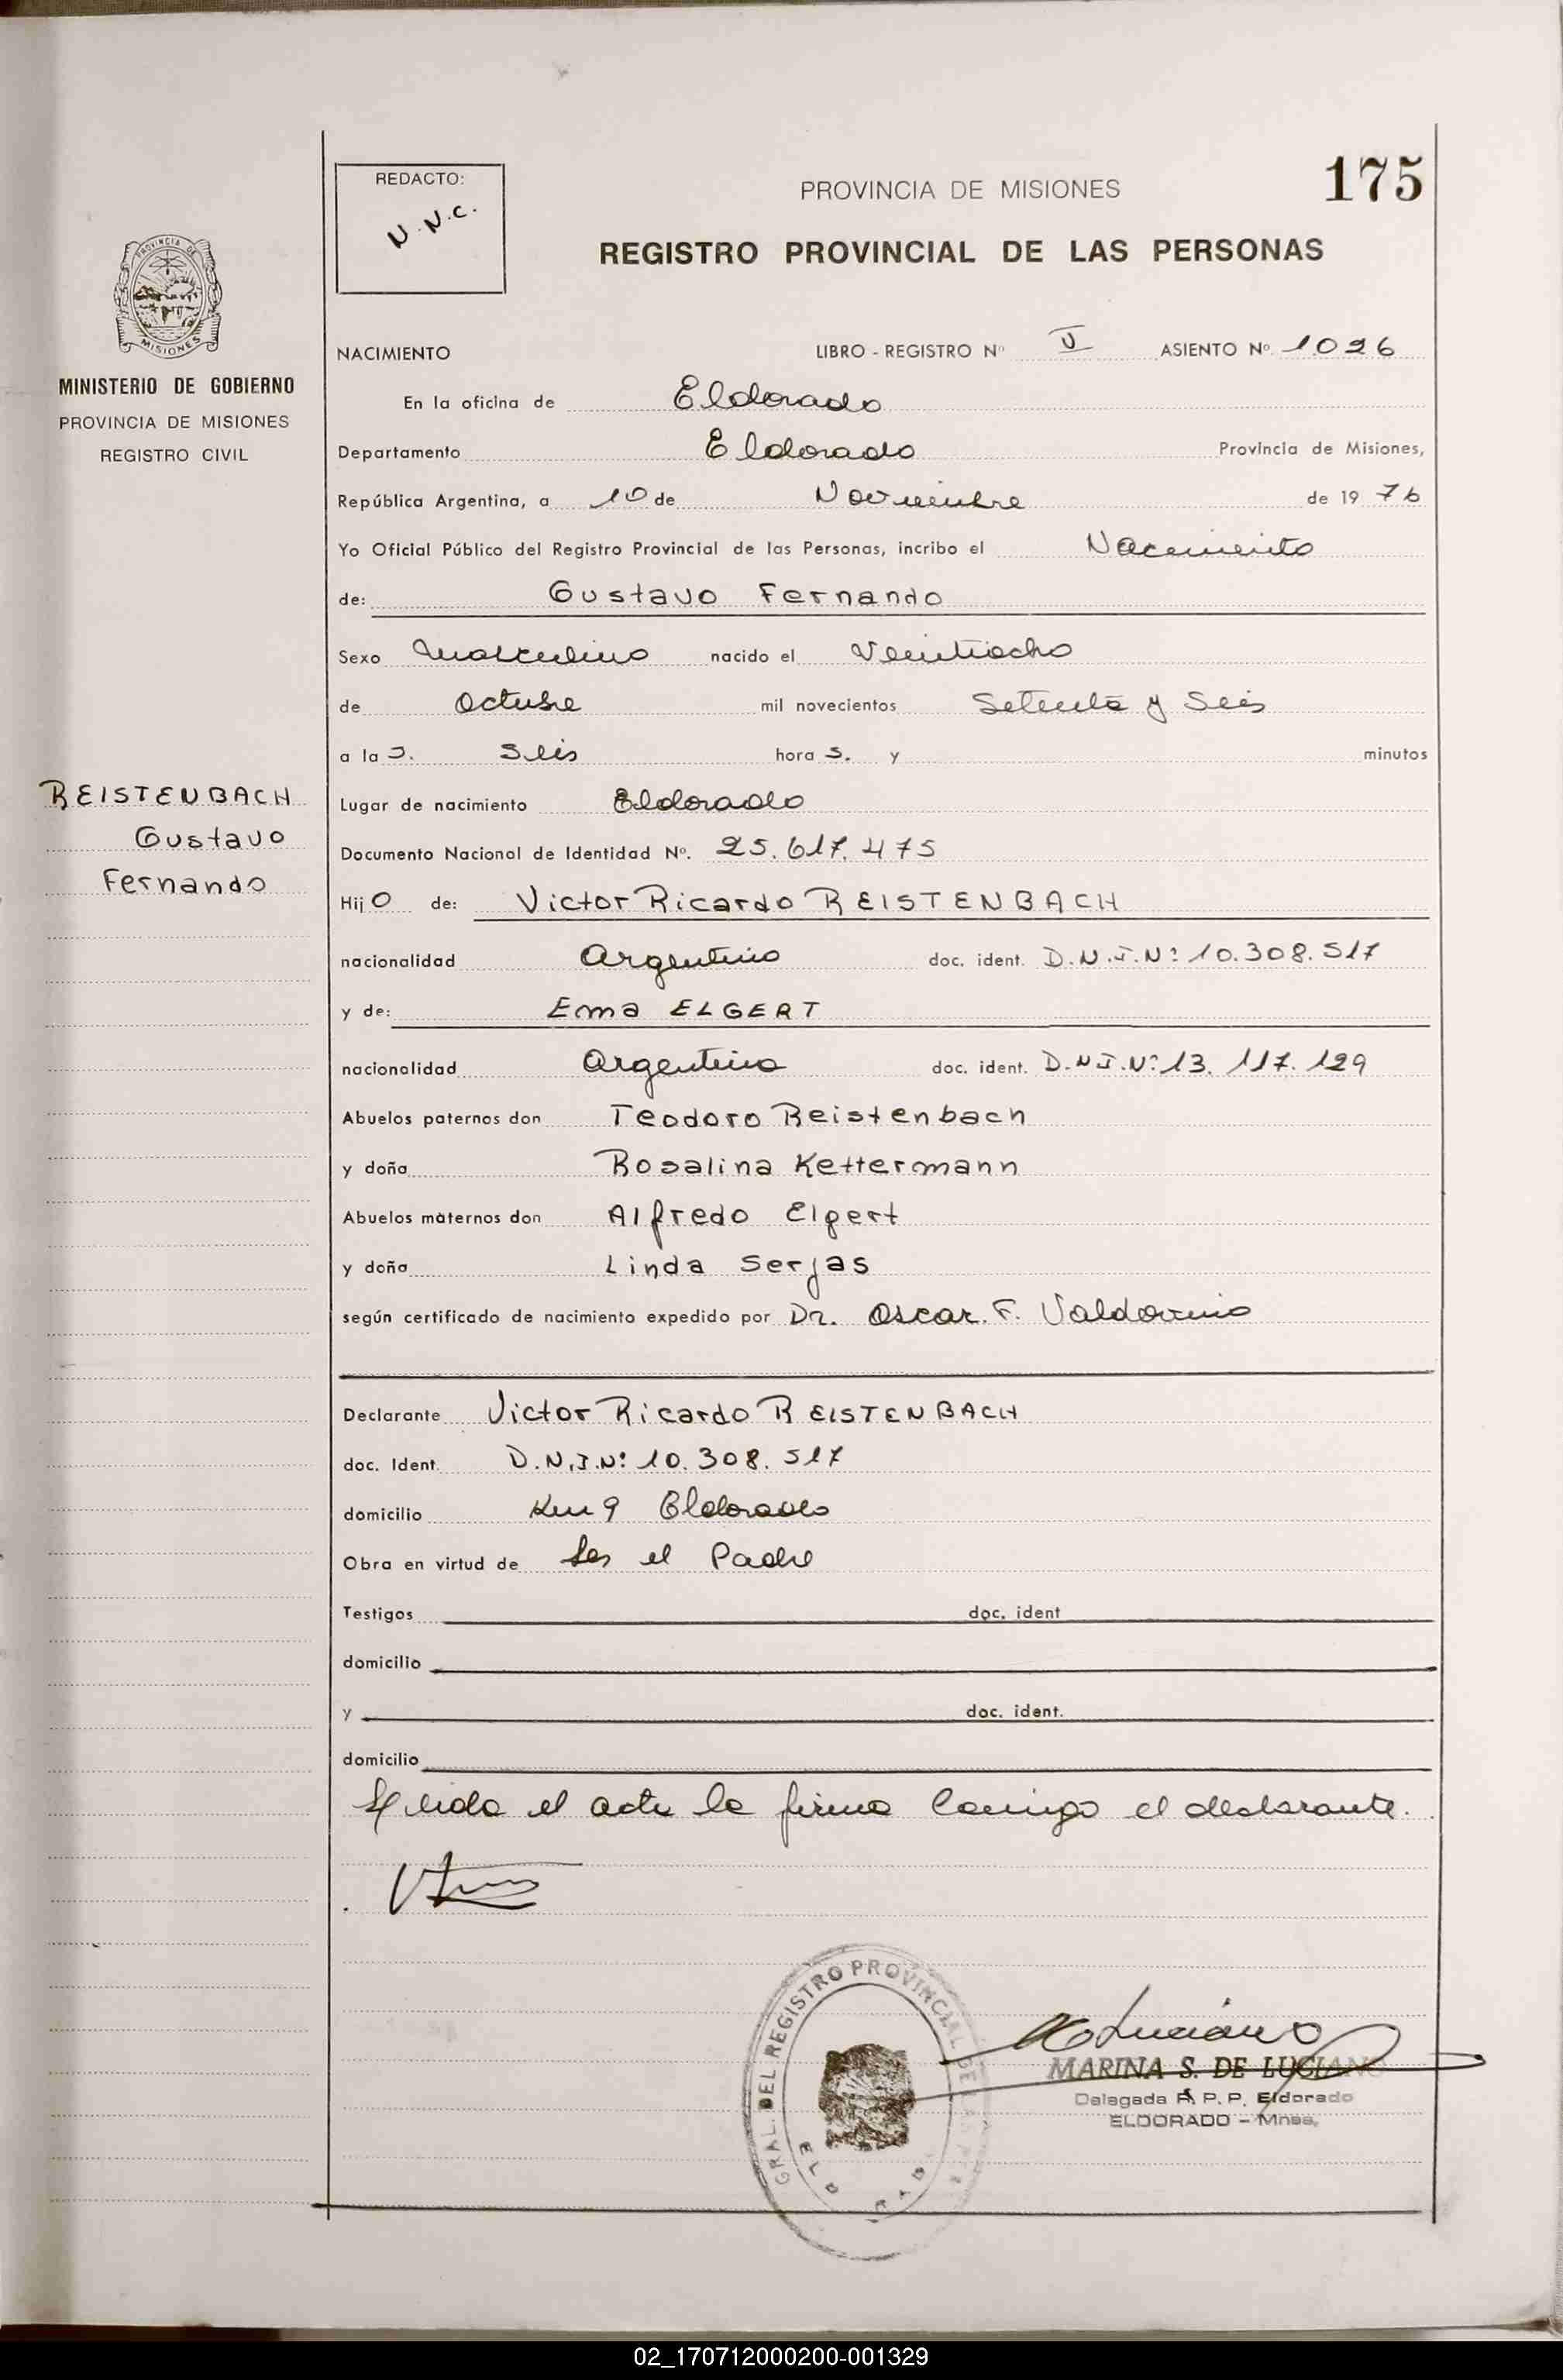 175
REDACTO:
N.N.C.
PROVINCIA DE MISIONES
REGISTRO PROVINCIAL DE LAS PERSONAS
PROVINCIA DE
MISIONES
MINISTERIO DE GOBIERNO
PROVINCIA DE MISIONES
REGISTRO CIVIL
REISTENBACH
Gustavo
Fernando
NACIMIENTO LIBRO - REGISTRO Nº V ASIENTO Nº 1026
En la oficina de Eldorado
Departamento Eldorado Provincia de Misiones,
República Argentina, a 10 de Noviembre de 19 76
Yo Oficial Público del Registro Provincial de las Personas, incribo el Nacimiento
de: Gustavo Fernando
Sexo Masculino nacido el Veintiocho
de Octubre mil novecientos Setenta y Seis
a la s. Seis hora s. y minutos
Lugar de nacimiento Eldorado
Documento Nacional de Identidad Nº. 25.617.475
Hij o de: Victor Ricardo REISTENBACH
nacionalidad Argentino doc. ident. D.N.I.Nº: 10.308.517
y de: Ema ELGERT
nacionalidad Argentina doc. ident. D.N.I.Nº: 13.117.129
Abuelos paternos don Teodoro Reistenbach
y doña Rosalina Kettermann
Abuelos maternos don Alfredo Elgert
y doña Linda Serjas
según certificado de nacimiento expedido por Dr. Oscar. F. Valdovino
Declarante Victor Ricardo REISTENBACH
doc. Ident. D.N.I.Nº: 10.308.517
domicilio Km 9 Eldorado
Obra en virtud de Ser el Padre
Testigos doc. ident
domicilio
y doc. ident.
domicilio
leida el acta la firma Conmigo el declarante.
GRAL. DEL REGISTRO PROVINCIAL DE
MARINA S. DE LUCIANO
Delegada R. P. P. Eldorado
ELDORADO - Mnes.
02_170712000200-001329